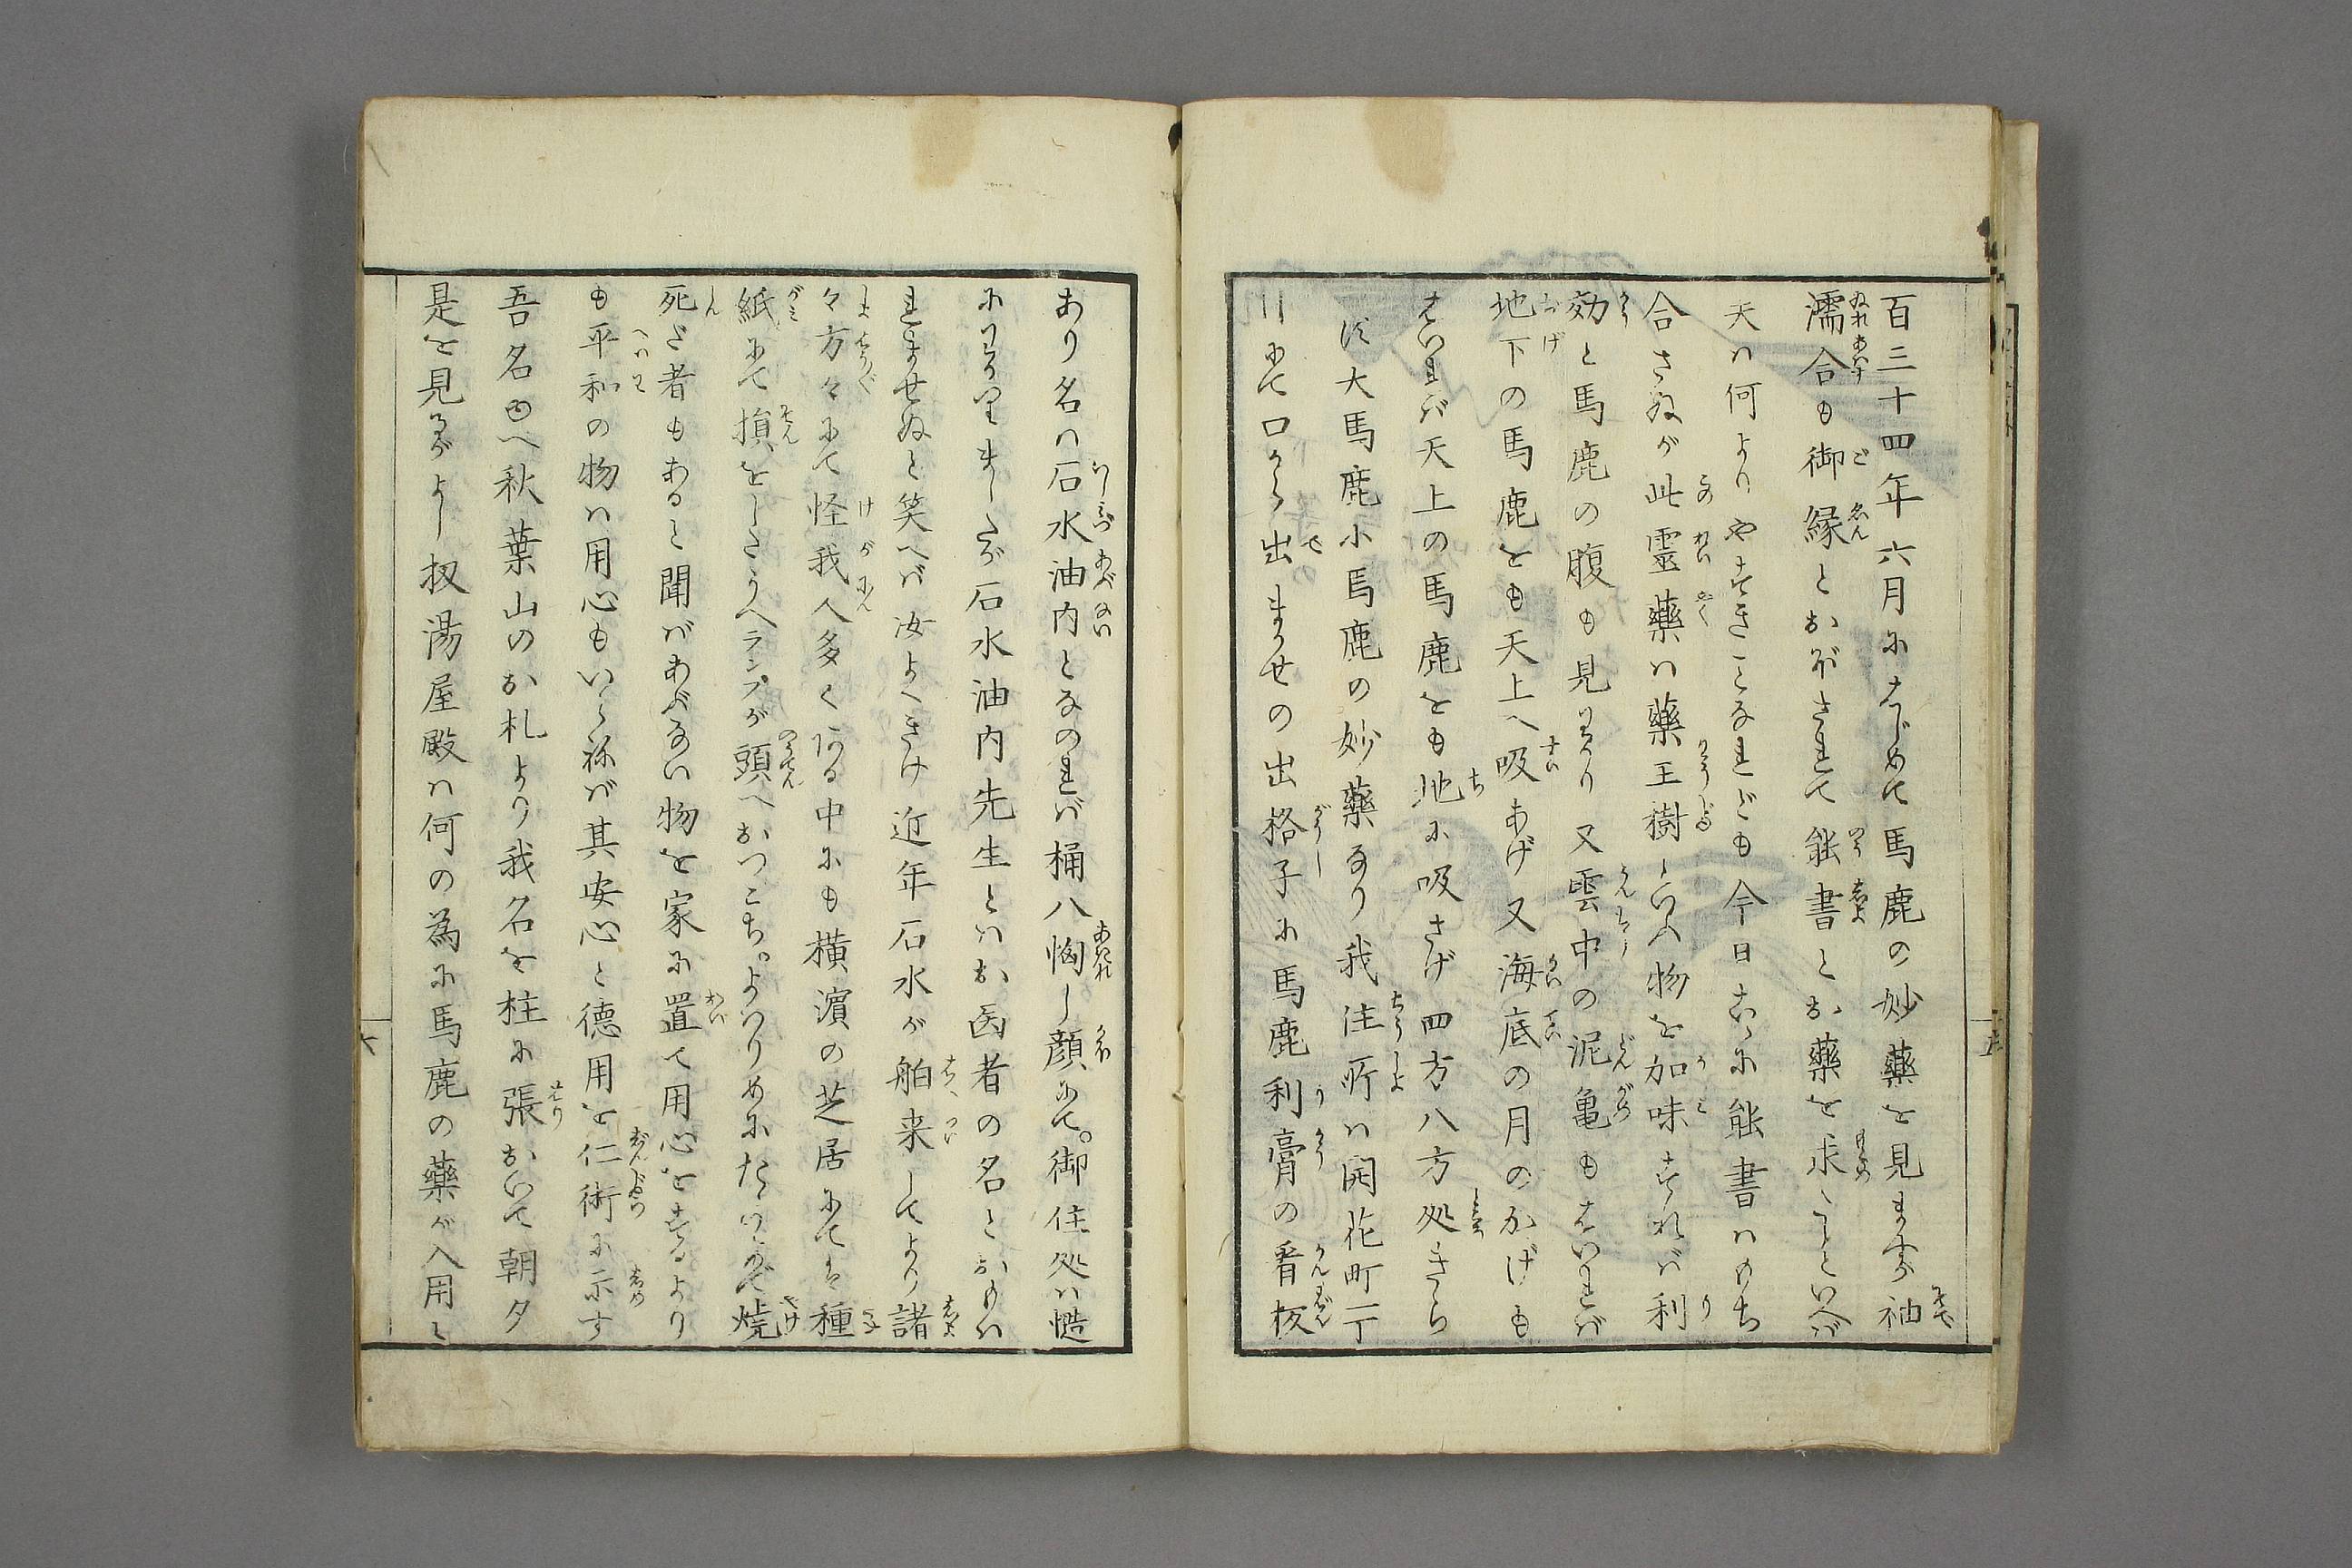 百三十四年六月にはじめて馬鹿の妙薬を見ますが袖
濡合も御縁とおぼされて能書とお薬を求たしといへば
天は何よりやすきことなれども今日こゝに能書はのち
合さぬが此霊薬は薬王樹といふ物を加味すれば利
効と馬鹿の腹も見すかり又雲中の泥亀もはいれば
地下の馬鹿をも天上へ吸あげ又海底の月のかげも
はいれば天上の馬鹿をも地に吸さげ四方八方処きら
はず大馬鹿小馬鹿の妙薬なり我住所は開花町一丁
目にて口から出まかせの出格子に馬鹿利膏の看板
あり名は石水油内となのれば桶八惘し顔にて。御住処は慥
にわかりましたが石水油内先生とはお医者の名とおもは
れませぬと笑へば汝よくきけ近年石水が舶来してより諸
々方々にて怪我人多くある中にも横濱の芝居にては種
紙にて損をしたうへランプが頭へおつこち。よつりめにたゝりめで焼
死だ者もあると聞があぶない物を家に置て用心をするより
も平和の物は用心もいらねば其安心と徳用を仁術に示す
吾名ゆへ秋葉山のお札より我名を柱に張おいて朝夕
是を見るがよし扨湯屋殿は何の為に馬鹿の薬が入用と